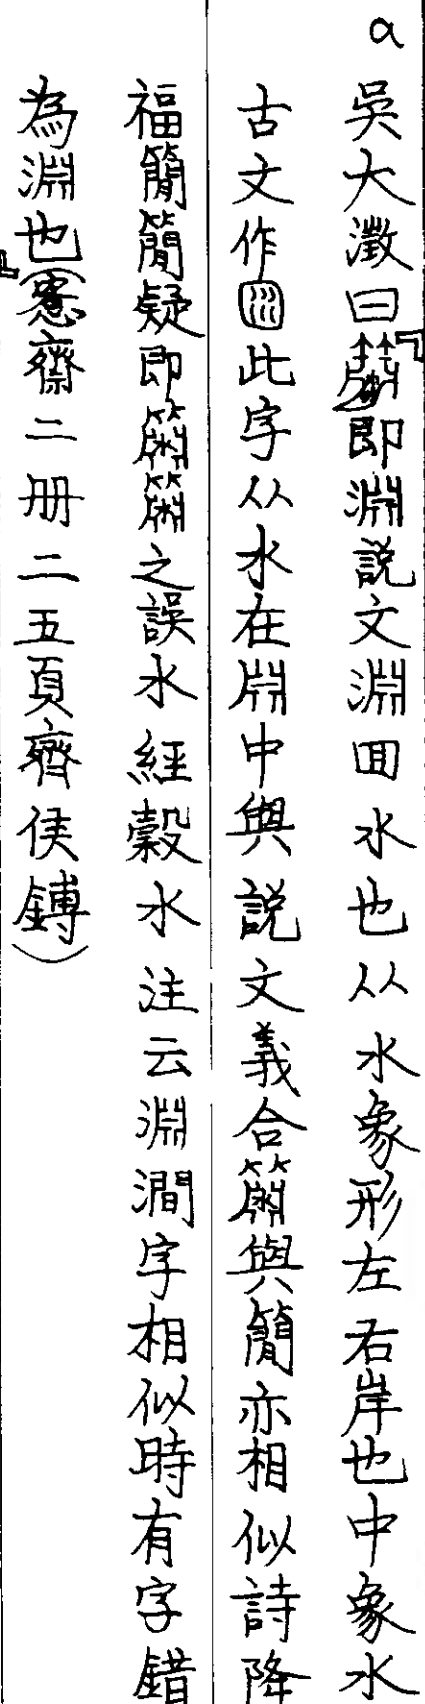 a
吳大澂曰「𥳑即淵說文淵囬水也从水象形左右岸也中象水
古文作𡇌此字从水在𣶒中與說文義合𥳑與簡亦相似詩降
福簡簡疑即之誤水經穀水注云淵澗字相似時有字錯
為淵也」(愙齋二册二五頁齊侯鎛)